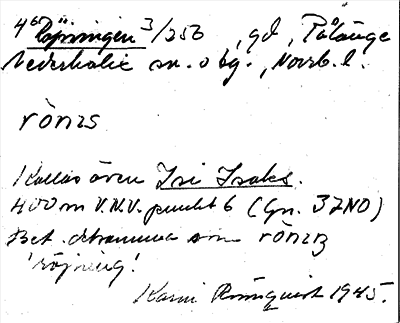 4 Röjningen 3/25b, gd, Pålänge
Nederkalix sn. o bg., Norrb. l.
rönıs
Kallas även Isi Isaks.
400 m V.N.V. punkt 6 (Gn. 37NO)
Bet. detsamma som
'röjning'.
Karin Rönnquist 1945.